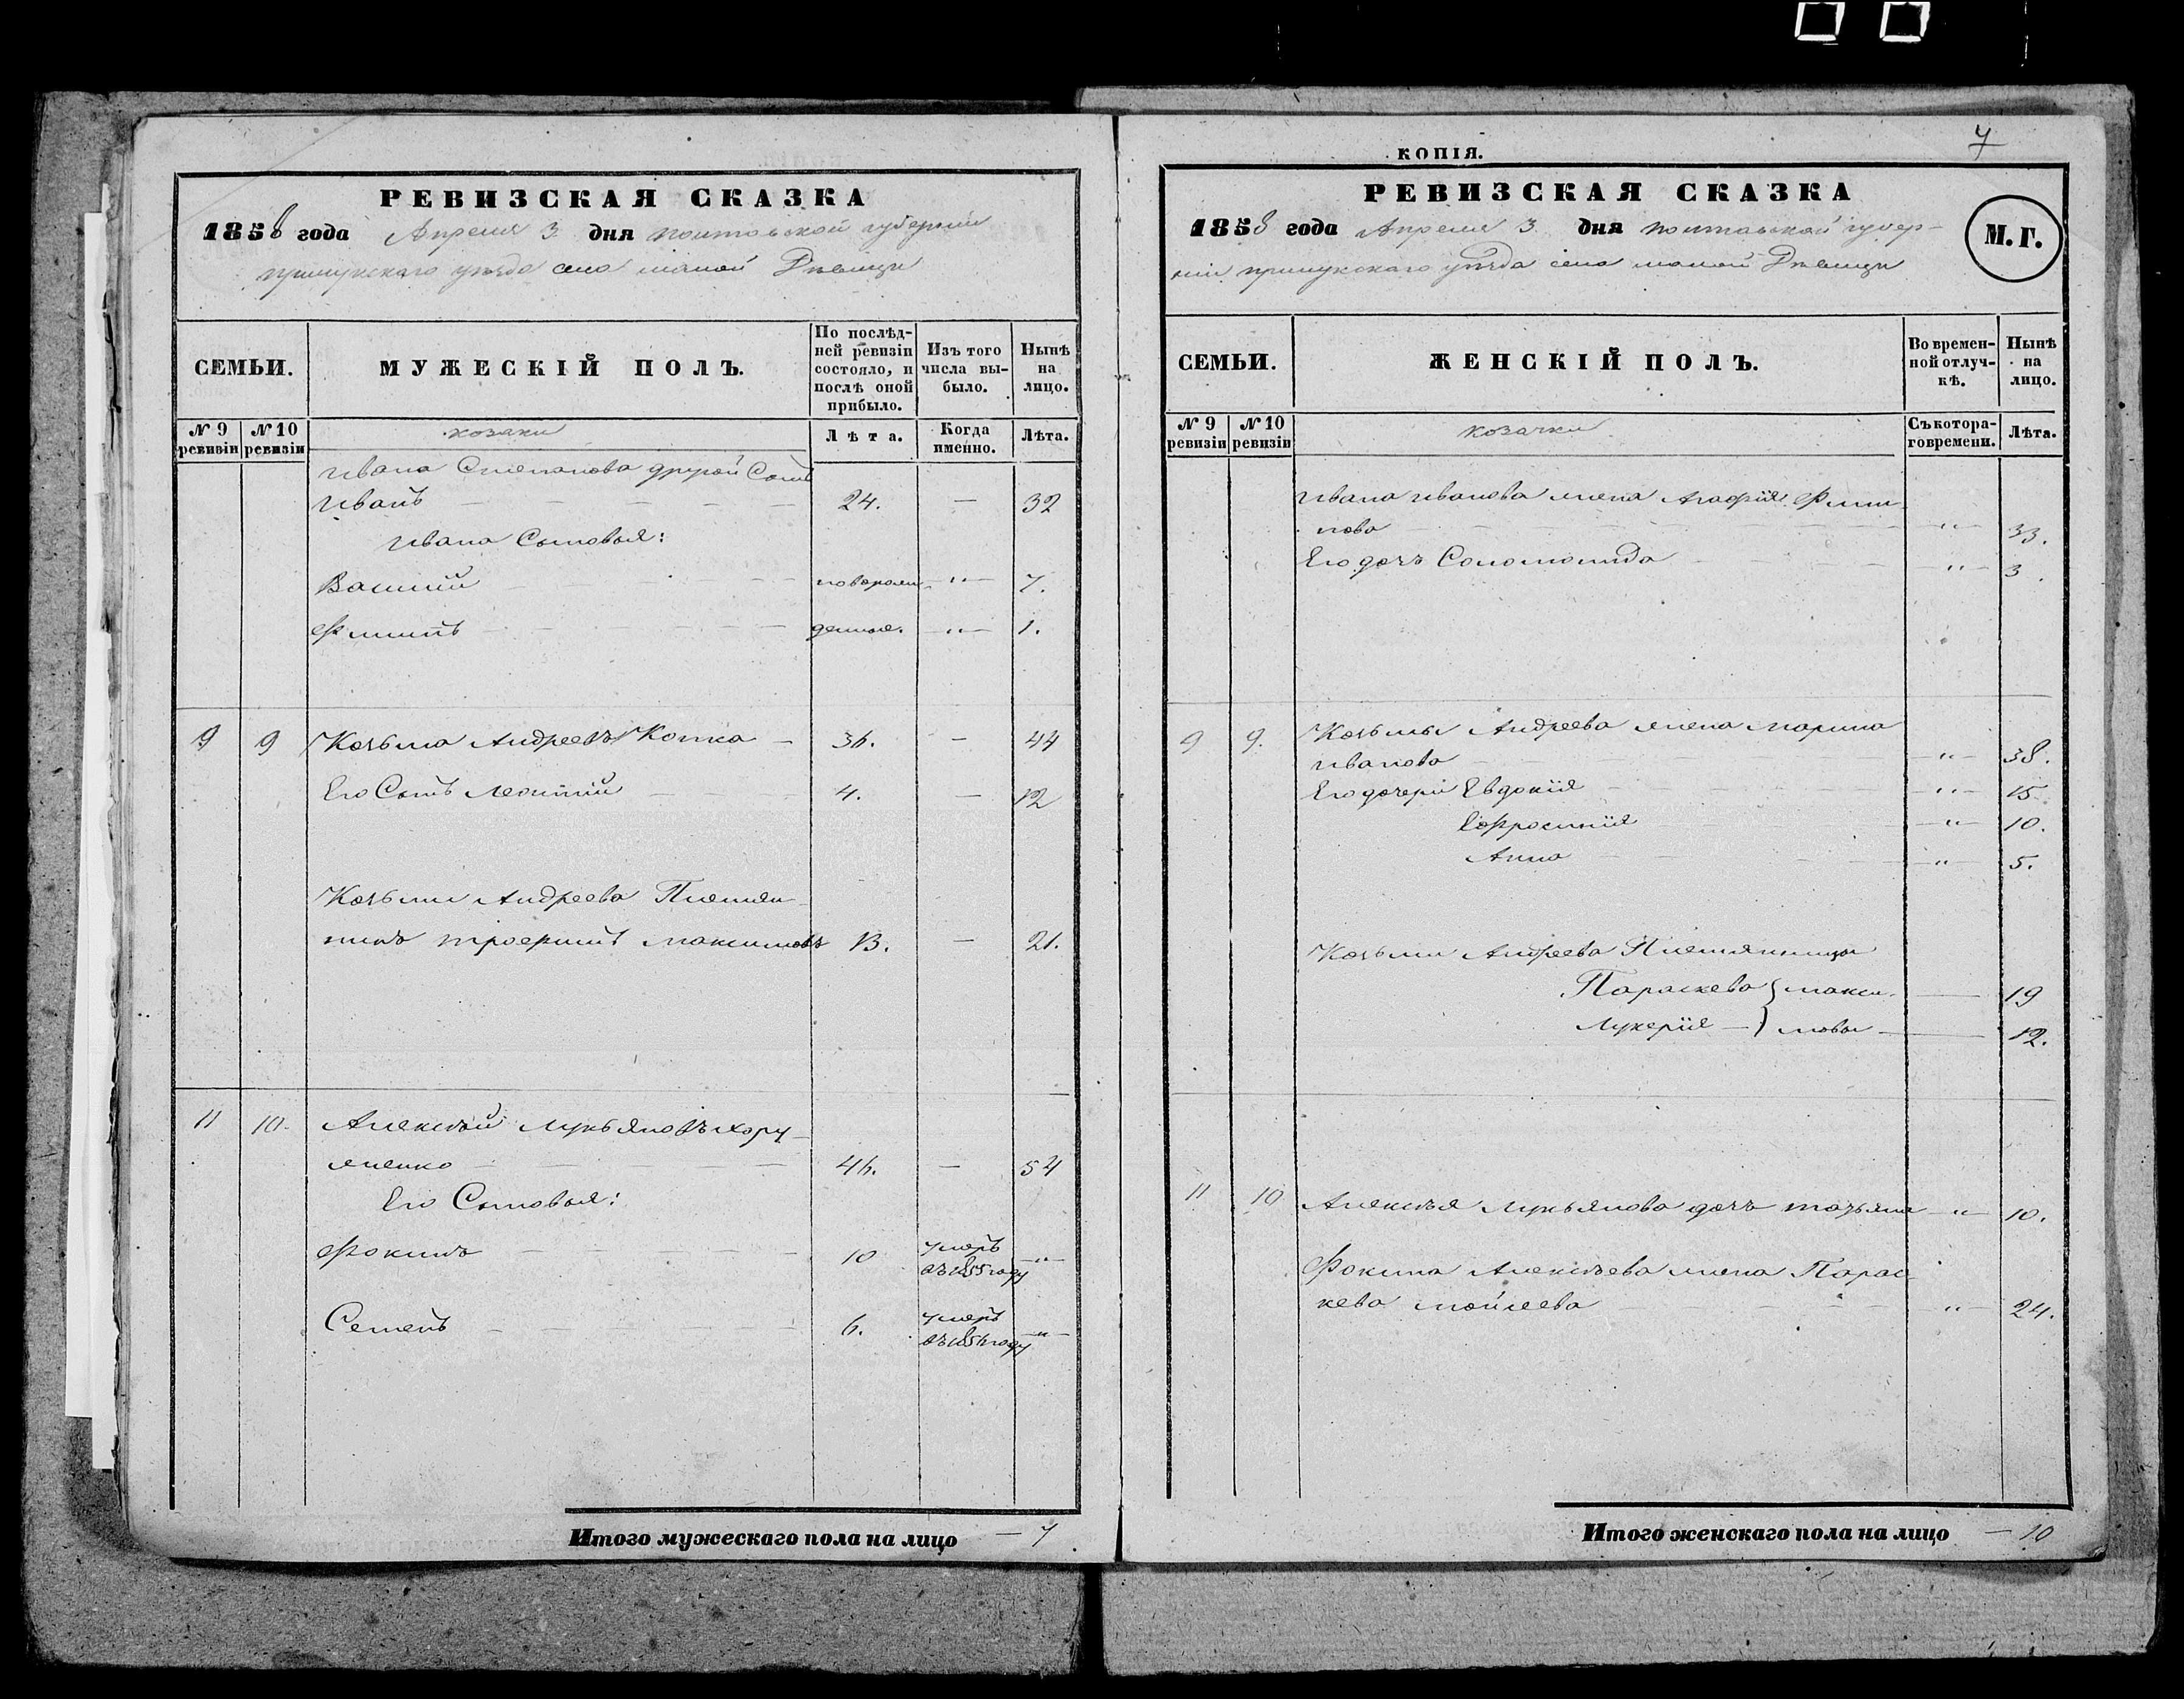 РЕВИЗСКАЯ СКАЗКА
1858 года Апреля 3 дня полтавской губернии
прилукскаго уѣзда села малой Дѣвицы
СЕМЬИ.
МУЖЕСКІЙ ПОЛЪ.
По послѣд-
ней ревизіи
состояло, и
послѣ оной
прибыло.
Изъ того
числа вы-
было.
Нынѣ
на
лицо.
№ 9
ревизіи
№ 10
ревизіи
козаки
Лѣта.
Когда
именно.
Лѣта.
Ивана Степанова другой Сынъ
Иванъ — 24. — 32
Ивана Сыновья:
Василій — новорож „ 7.
Филипъ — денные. „ 1.
9 9 Козьма Андреевъ Копка — 36. — 44
Его Сынъ Леонтій — 4. — 12
Козьмы Андреева Племян-
никъ трофимъ максимовъ 13. — 21.
11 10. Алексѣй Лукьяновъ хору-
женко — 46. — 54
Его Сыновья:
Фокинъ — 10 умеръ
въ 1855 году „
Семенъ — 6. умеръ
въ 1856 году „
Итого мужескаго пола на лицо — 7
7
КОПІЯ.
РЕВИЗСКАЯ СКАЗКА
1858 года Апреля 3 дня полтавской губер-
ніи прилукскаго уѣзда села малой Дѣвицы
М. Г.
СЕМЬИ.
ЖЕНСКІЙ ПОЛЪ.
Во времен-
ной отлуч-
кѣ.
Нынѣ
на
лицо.
№ 9
ревизіи
№ 10
ревизіи
козачки
Съ котора-
го времени.
Лѣта.
Ивана Иванова жена Агафія Фили-
пова — „ 33.
Его дочь Соломонида — „ 3.
9 9. Козьмы Андреева жена марина
Иванова — „ 38.
Его дочери Евдокія — „ 15
Ефросинія — „ 10.
Анна — „ 5.
Козьмы Андреева Племянницы
Параскева } макси- — 19
Лукерія — } мовы — 12.
11 10 Алексѣя Лукьянова дочь татьяна — „ 10.
Фокина Алексѣева жена Парас-
кева мойсеева — „ 24.
Итого женскаго пола на лицо — 10